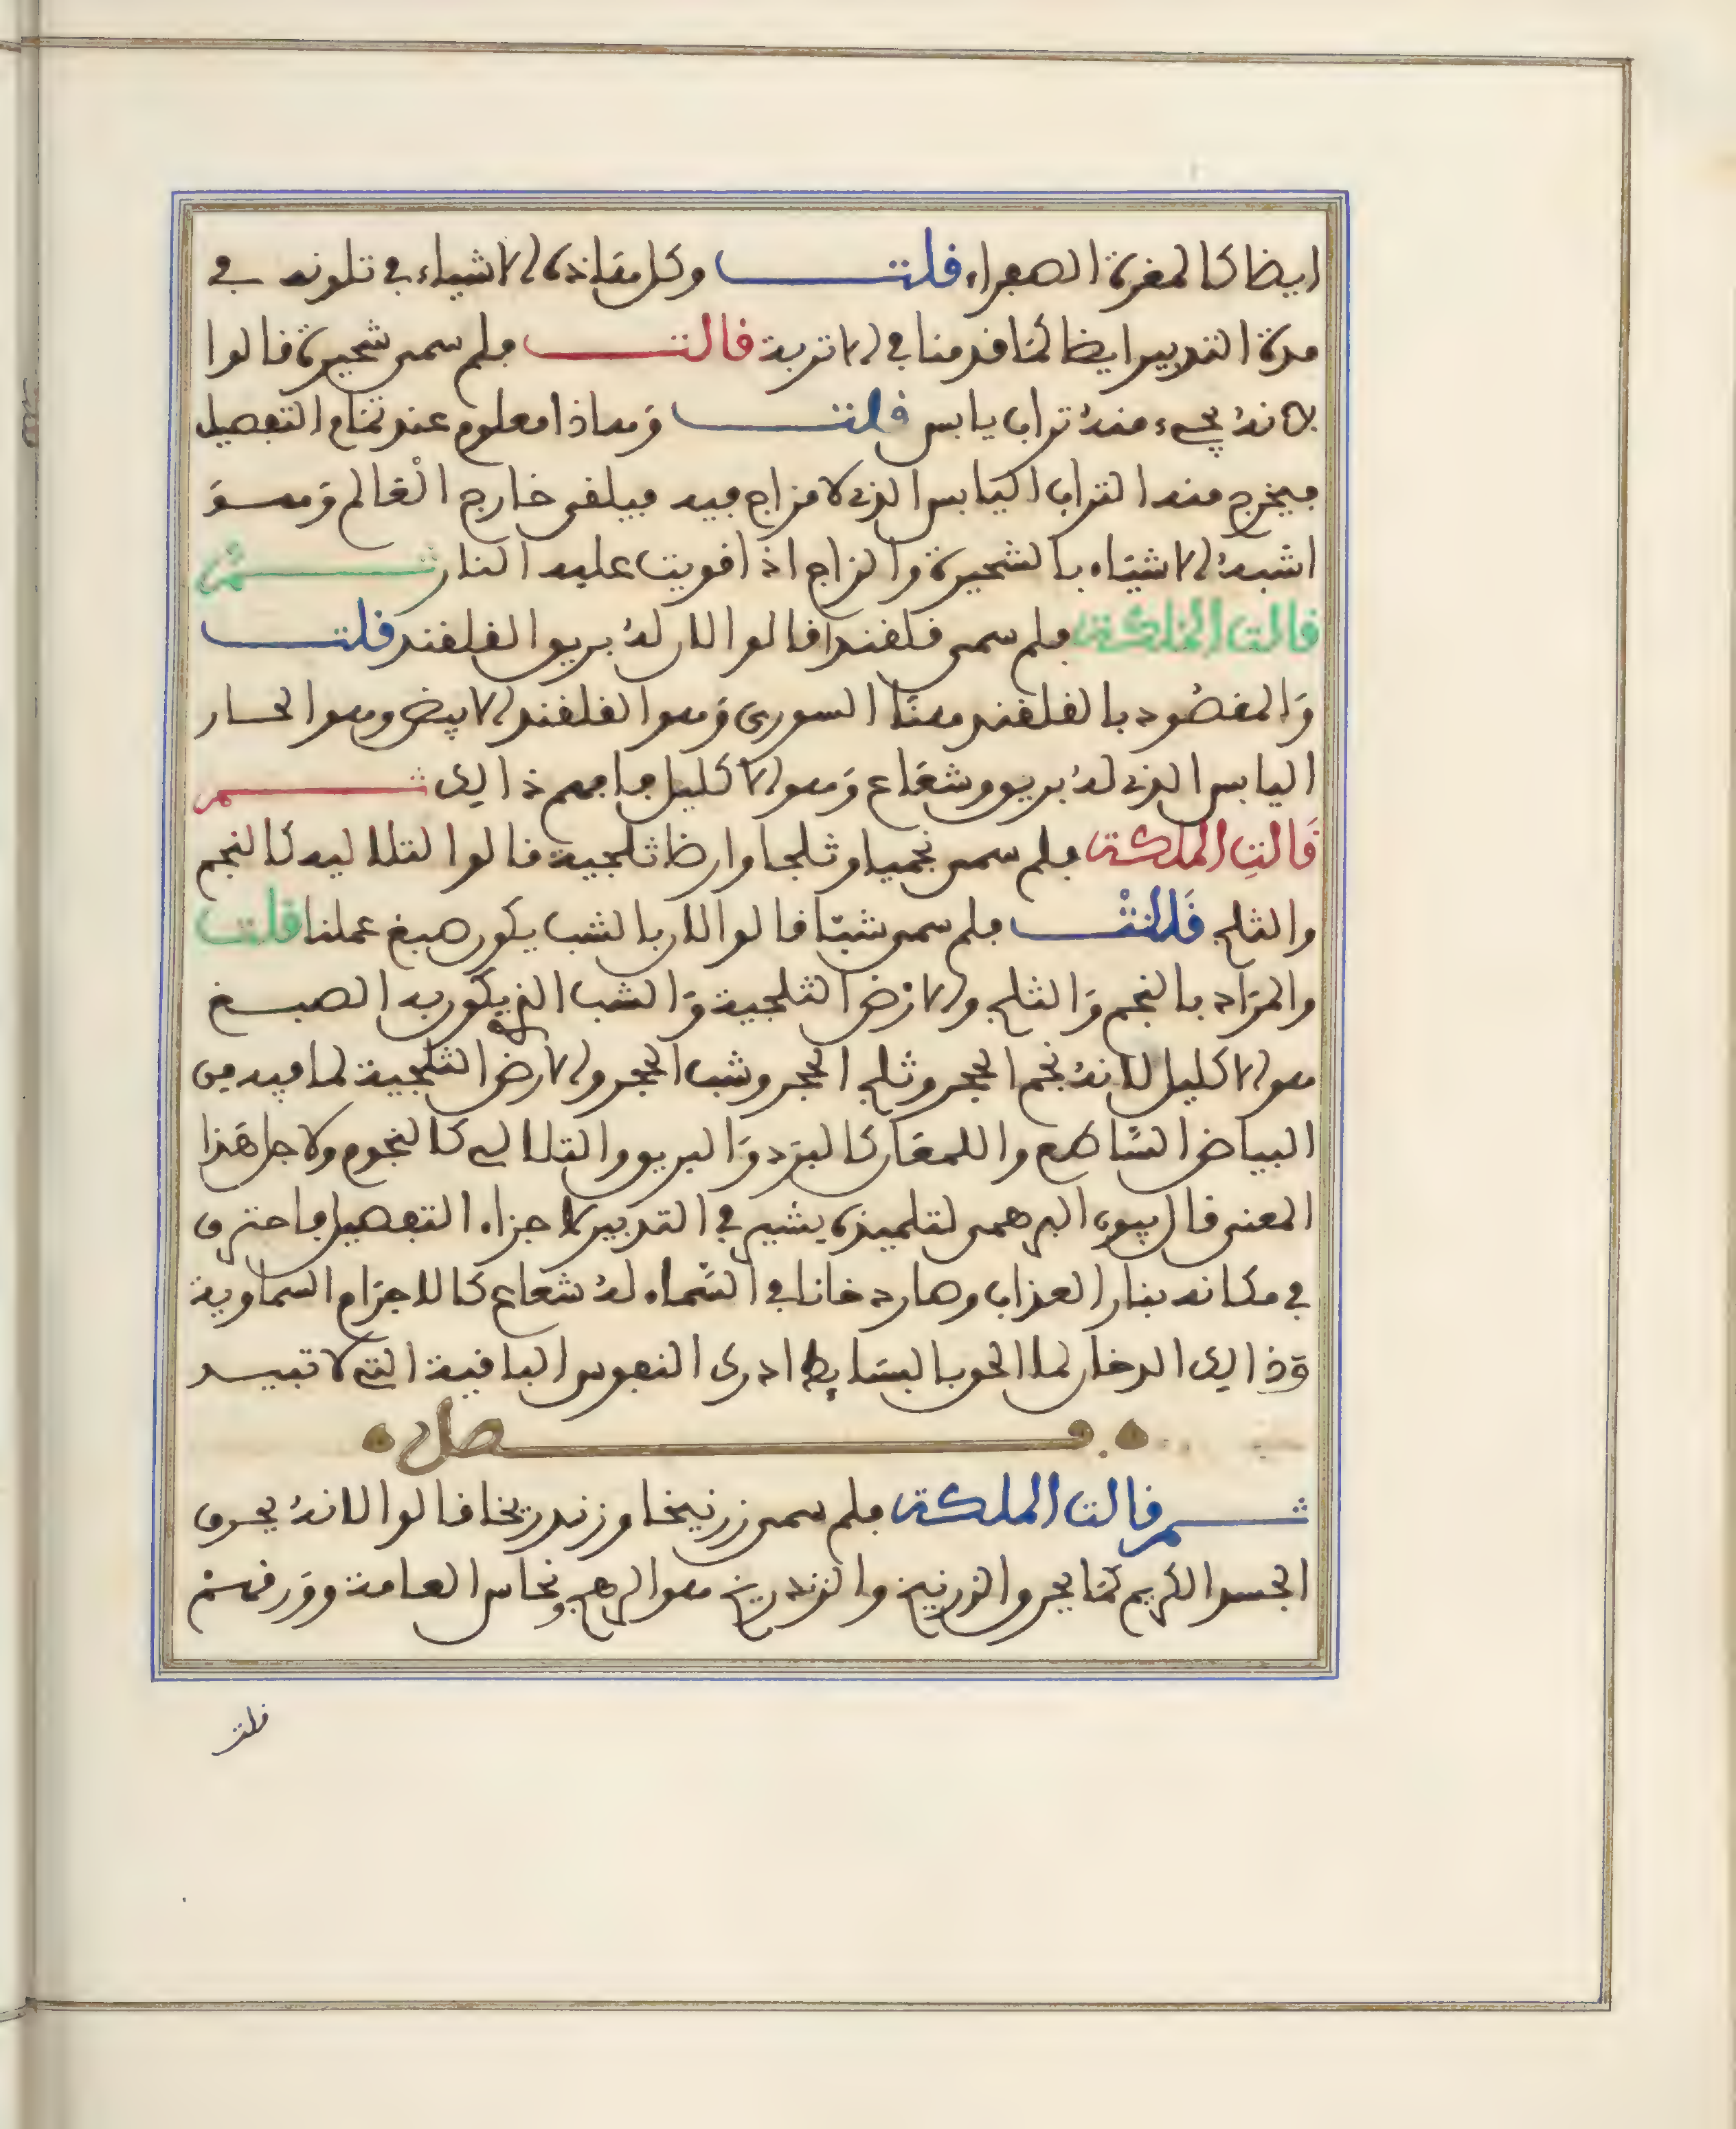 ايضا كالمغرة الصفراء قلت وكل هاذه الاشياء في تلونه في
مدة التدبير ايضا كما قدمنا في الاتربة قالت فلم سمي شحيرة قالوا
لانه يجيء منه تراب يابس قلت وهاذا معلوم عند تمام التفصيل
فيخرج منه التراب اليابس الذي لا مزاج فيه فيلقى خارج العالم وهو
اشبه الاشياء بالشحيرة والزاج اذا قويت عليه النار ثم
قالت الملكة فلم سمي قلقندا قالوا لان له بريق القلقند قلت
والمقصود بالقلقند هنا السوري وهو القلقند الابيض وهو الحار
اليابس الذي له بريق وشعاع وهو الاكليل فافهم ذالك ثم
قالت الملكة فلم سمي نجميا وثلجا وارضا ثلجية قالوا لتلاليه كالنجم
والثلج قالت فلم سمي شبا قالوا لان بالشب يكون صبغ عملنا قلت
والمراد بالنجم والثلج والارض الثلجية والشب الذي يكون به الصبغ
هو الاكليل لانه نجم الحجر وثلج الحجر وشب الحجر والارض الثلجية لما فيه من
البياض الساطع واللمعان كالبرد والبريق والتلالي كالنجوم ولاجل هذا
المعنى قال بيون البرهمي لتلميذه يشير في التدبير لاجزاء التفصيل فاحترق
في مكانه بنار العذاب وصار دخانا في السماء له شعاع كالاجرام السماوية
وذالك الدخان لما الحق بالبسايط ادرك النفوس الباقية التي لا تبيد
فصل
ثم قالت الملكة فلم سمي زرنيخا وزندريخا قالوا لانه يحرق
الجسد الكريم كما يحرق الزرنيخ والزندريخ هو الرهج ونحاس العامة وورقهم
قلت